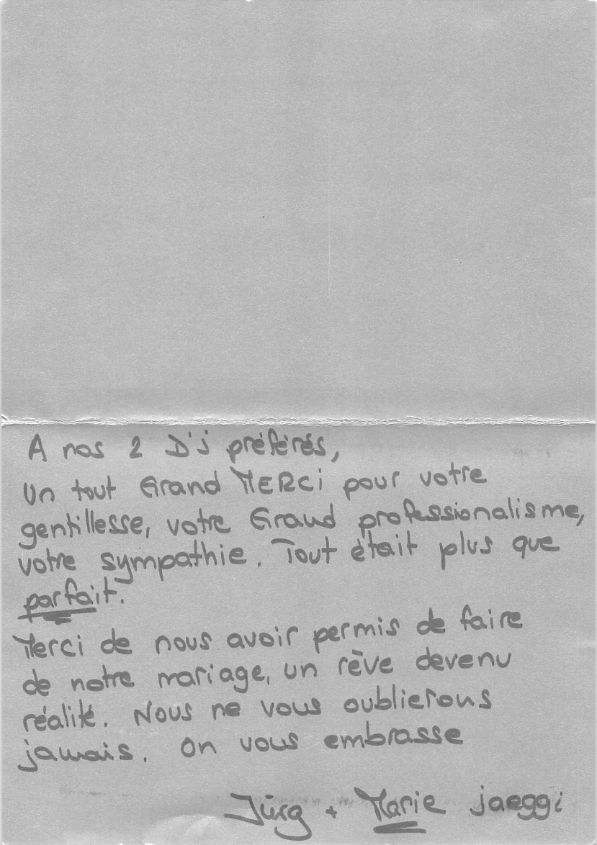 A nos 2 D'j préférés,
Un tout Grand MERCi pour votre
gentillesse, votre Grand professionalisme,
votre sympathie. Tout était plus que
parfait.
Merci de nous avoir permis de faire
de notre mariage, un rêve devenu
réalité. Nous ne vous oublierons
jamais. On vous embrasse
Jürg + Marie jaeggi